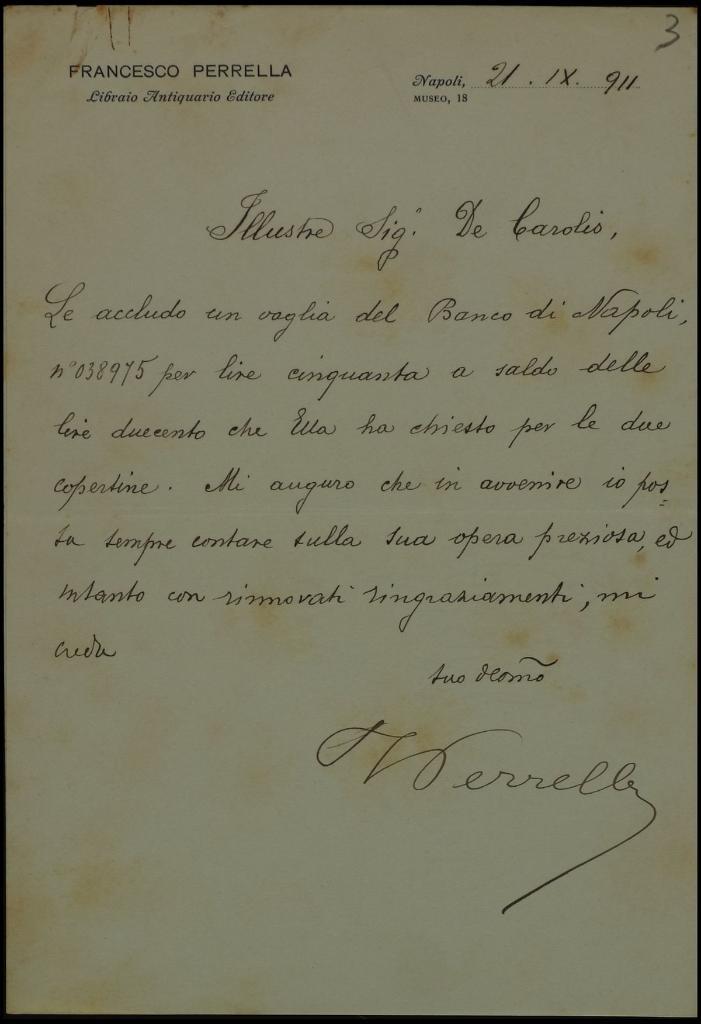 3
FRANCESCO PERRELLA
Libraio Antiquario Editore
Napoli, 21 . IX . 911
MUSEO, 18
Illustre Sig.r De Carolis,
Le accludo un vaglia del Banco di Napoli,
n° 038975 per lire cinquanta a saldo delle
lire duecento che Ella ha chiesto per le due
copertine. Mi auguro che in avvenire io pos=
sa sempre contare sulla sua opera preziosa, ed
intanto con rinnovati ringraziamenti, mi
creda
suo devmo
F Perrella